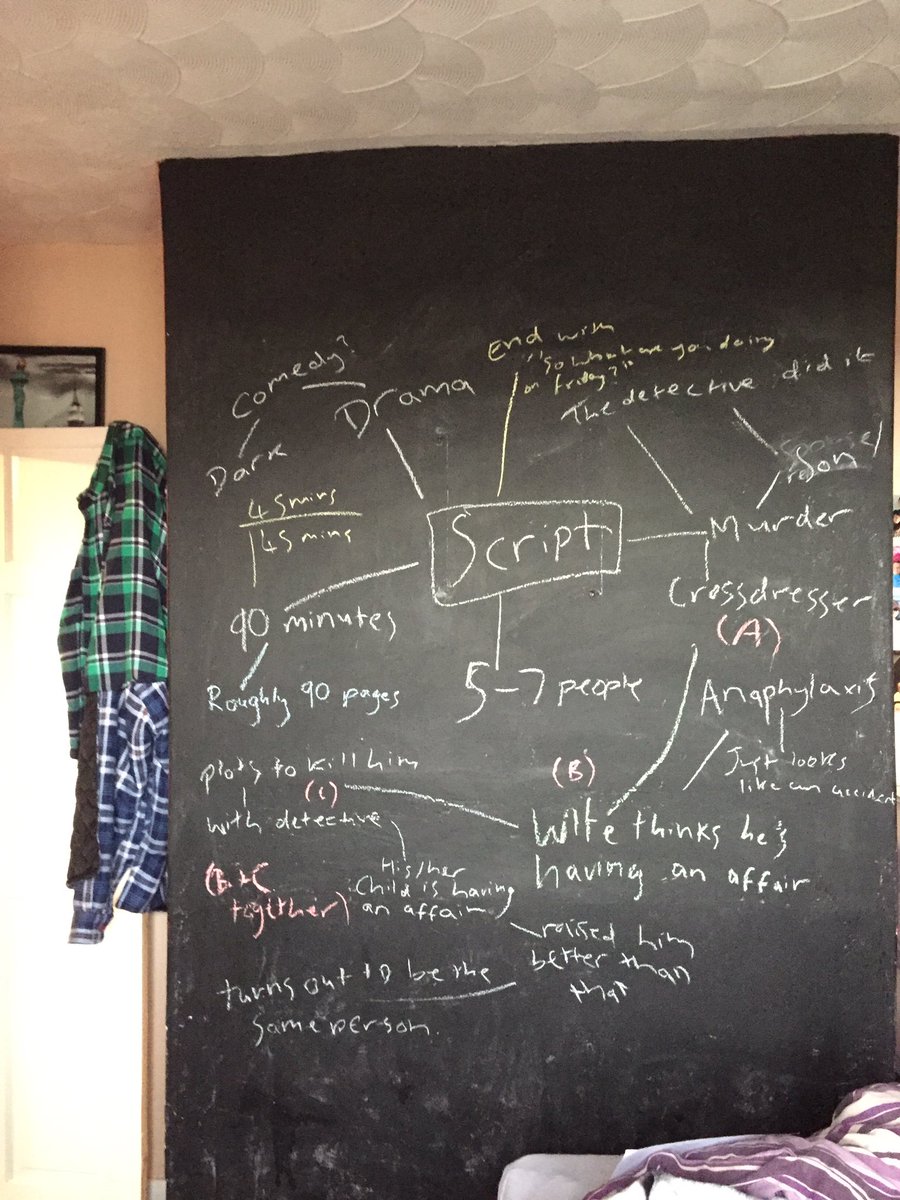 Comedy?
Dark
Drama
End with
"So what are you doing
on friday?"
The detective did it
Murder
45 mins
45 mins
Script
90 minutes
Roughly 90 pages
5-7 people
Crossdresser
(A)
Anaphylaxis
Just looks
like an accident
plots to kill him
(C)
with detective
(B)
Wife thinks he's
having an affair
(B+C
together)
His/her
Child is having
an affair
raised him
better than
that
turns out to be the
same person.